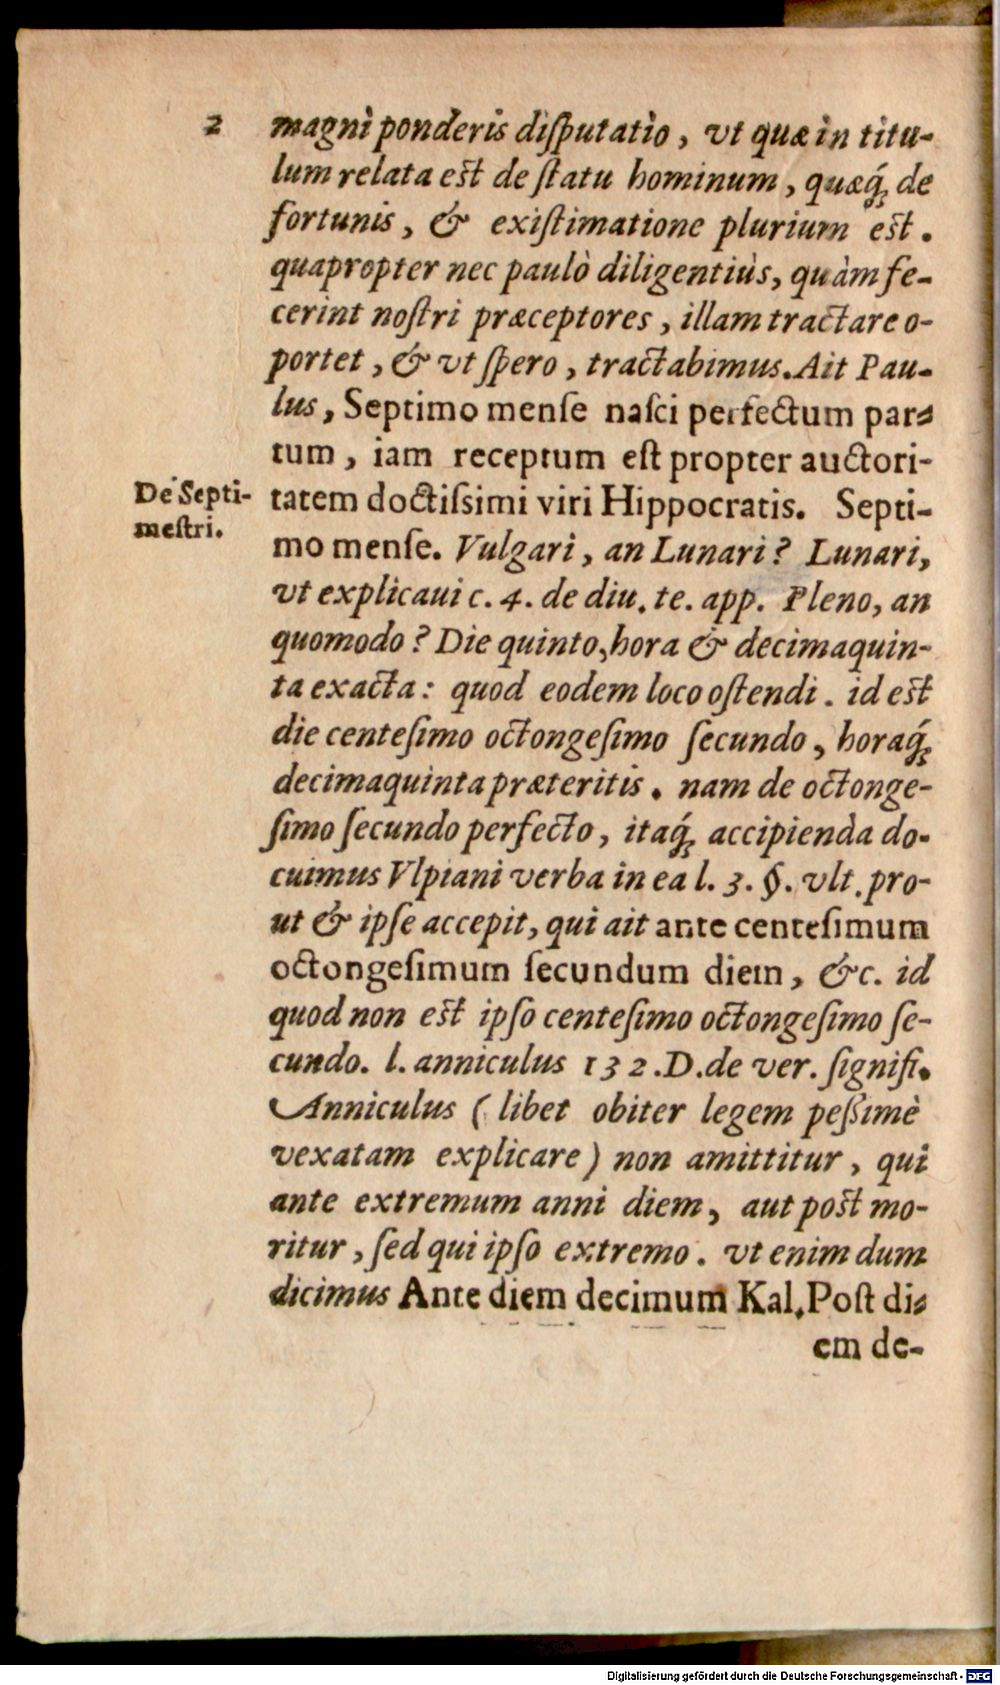 2 magni ponderis diſputatio, vt quæ in titu-
lum relata est de ſtatu hominum, quæq́; de
fortunis, & exiſtimatione plurium est.
quapropter nec paulò diligentiùs, quàm fe-
cerint noſtri præceptores, illam tractare o-
portet, & vt ſpero, tractabimus. Ait Pau-
lus, Septimo menſe naſci perfectum par-
tum, iam receptum eſt propter auctori-
De Septi-
meſtri.
tatem doctiſsimi viri Hippocratis. Septi-
mo menſe. Vulgari, an Lunari? Lunari,
vt explicaui c. 4. de diu. te. app. Pleno, an
quomodo? Die quinto, hora & decimaquin-
ta exacta: quod eodem loco oſtendi. id est
die centeſimo octongeſimo ſecundo, horaq́;
decimaquinta præteritis. nam de octonge-
ſimo ſecundo perfecto, itaq́; accipienda do-
cuimus Vlpiani verba in ea l. 3. §. vlt. pro-
ut & ipſe accepit, qui ait ante centeſimum
octongeſimum ſecundum diem, &c. id
quod non est ipſo centeſimo octongeſimo ſe-
cundo. l. anniculus 132. D. de ver. ſignifi.
Anniculus (libet obiter legem peſsimè
vexatam explicare) non amittitur, qui
ante extremum anni diem, aut post mo-
ritur, ſed qui ipſo extremo. vt enim dum
dicimus Ante diem decimum Kal. Poſt di-
em de-
Digitalisierung gefördert durch die Deutsche Forschungsgemeinschaft - DFG